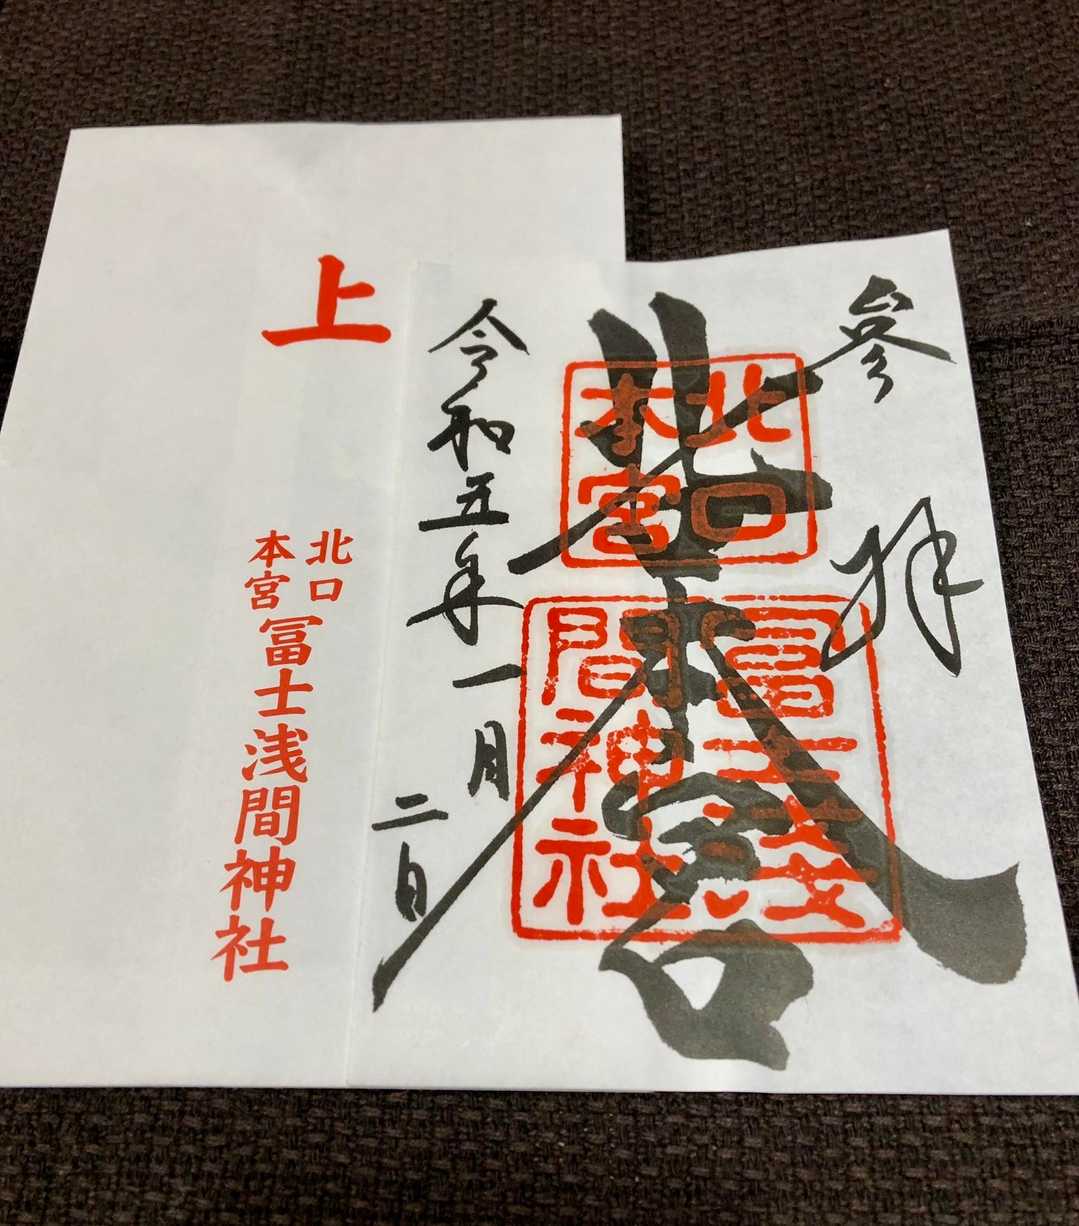 上
北口
本宮
冨士浅間神社
参拝
北口本宮
北口
本宮
冨士淺
間神社
令和五年一月二日